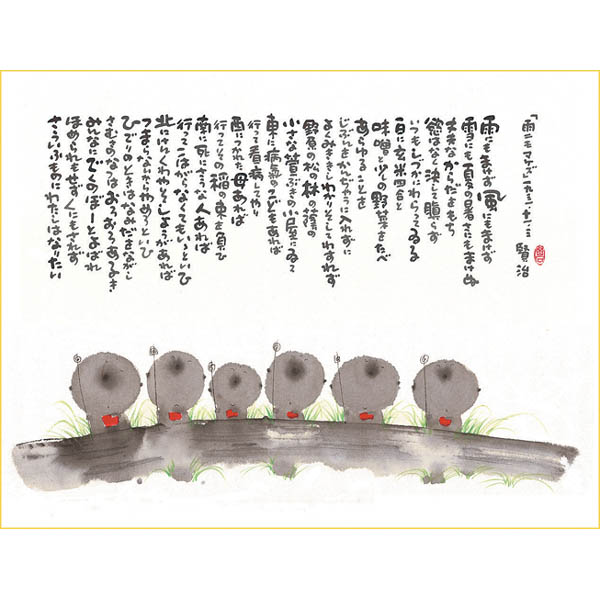 「雨ニモマケズ」一九三一・十一・三
賢治
雨にもまけず 風にもまけず
雪にも夏の暑さにもまけぬ
丈夫なからだをもち
慾はなく決して瞋らず
いつもしづかにわらってゐる
一日に玄米四合と
味噌と少しの野菜をたべ
あらゆることを
じぶんをかんぢやうに入れずに
よくみききしわかりそしてわすれず
野原の松の林の蔭の
小さな萱ぶきの小屋にゐて
東に病気のこどもあれば
行って看病してやり
西につかれた母あれば
行ってその稲の束を負ひ
南に死にさうな人あれば
行ってこはがらなくてもいゝといひ
北にけんくわやそしょうがあれば
つまらないからやめろといひ
ひでりのときはなみだをながし
さむさのなつはおろおろあるき
みんなにでくのぼーとよばれ
ほめられもせずくにもされず
さういふものにわたしはなりたい